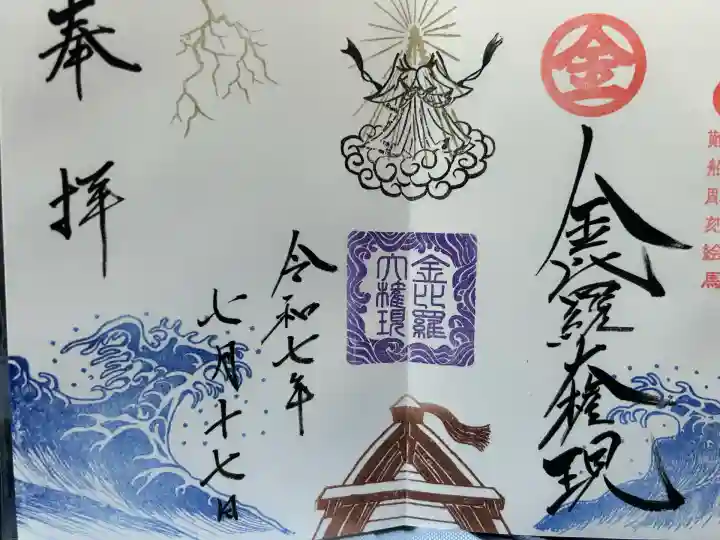 難船彫刻絵馬
金
金毘羅大権現
金比羅
大権現
令和七年
七月十七日
奉拝